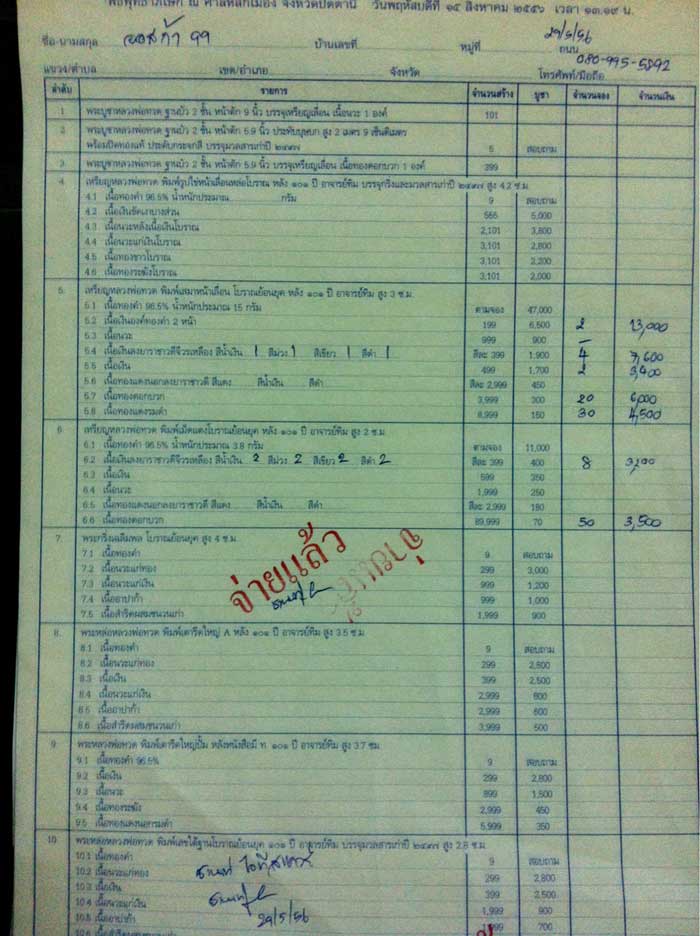 พิธีพุทธาภิเษก ณ ศาลหลักเมือง จังหวัดปัตตานี วันพฤหัสบดีที่ ๑๕ สิงหาคม ๒๕๕๖ เวลา ๑๓.๑๙ น.
ชื่อ-นามสกุล ออสก้า 99 บ้านเลขที่ หมู่ที่ ถนน 29/5/56
แขวง/ตำบล เขต/อำเภอ จังหวัด โทรศัพท์/มือถือ 080-995-5892
ลำดับ รายการ จำนวนสร้าง บูชา จำนวนจอง จำนวนเงิน
1 พระบูชาหลวงพ่อทวด ฐานบัว 2 ชั้น หน้าตัก 9 นิ้ว บรรจุเหรียญเลื่อน เนื้อนวะ 1 องค์ 101
2 พระบูชาหลวงพ่อทวด ฐานบัว 2 ชั้น หน้าตัก 5.9 นิ้ว ประทับบุษบก สูง 2 เมตร 9 เซ็นติเมตร
พร้อมปิดทองแท้ ประดับกระจกสี บรรจุมวลสารเก่าปี ๒๔๙๗ 5 สอบถาม
3 พระบูชาหลวงพ่อทวด ฐานบัว 2 ชั้น หน้าตัก 5.9 นิ้ว บรรจุเหรียญเลื่อน เนื้อทองดอกบวก 1 องค์ 399
4. เหรียญหลวงพ่อทวด พิมพ์รูปไข่หน้าเลื่อนหล่อโบราณ หลัง ๑๐๑ ปี อาจารย์ทิม บรรจุกริ่งและมวลสารเก่าปี ๒๔๙๗ สูง 4.2 ซ.ม.
4.1 เนื้อทองคำ 96.5% น้ำหนักประมาณ กรัม 9 สอบถาม
4.2 เนื้อเงินซัดเถาบางส่วน 555 5,000
4.3 เนื้อนวะหลังเนื้อเงินโบราณ 2,101 3,800
4.4 เนื้อนวะแก่เงินโบราณ 3,101 2,800
4.5 เนื้อทองขาวโบราณ 3,101 2,200
4.6 เนื้อทองระฆังโบราณ 3,101 2,000
5. เหรียญหลวงพ่อทวด พิมพ์เสมาหน้าเลื่อน โบราณย้อนยุค หลัง ๑๐๑ ปี อาจารย์ทิม สูง 3 ซ.ม.
5.1 เนื้อทองคำ 96.5% น้ำหนักประมาณ 15 กรัม ตามจอง 47,000
5.2 เนื้อเงินองค์ทองคำ 2 หน้า 199 6,500 2 13,000
5.3 เนื้อนวะ 999 900 –
5.4 เนื้อเงินลงยาราชาวดีจีวรเหลือง สีน้ำเงิน 1 สีม่วง 1 สีเขียว 1 สีดำ 1 สีละ 399 1,900 4 7,600
5.5 เนื้อเงิน 499 1,700 2 3,400
5.6 เนื้อทองแดงนอกลงยาราชาวดี สีแดง สีน้ำเงิน สีดำ สีละ 2,999 450
5.7 เนื้อทองดอกบวก 3,999 300 20 6,000
5.8 เนื้อทองแดงรมดำ 8,999 150 30 4,500
6. เหรียญหลวงพ่อทวด พิมพ์เม็ดแตงโบราณย้อนยุค หลัง ๑๐๑ ปี อาจารย์ทิม สูง 2 ซ.ม.
6.1 เนื้อทองคำ 96.5% น้ำหนักประมาณ 3.8 กรัม ตามจอง 11,000
6.2 เนื้อเงินลงยาราชาวดีจีวรเหลือง สีน้ำเงิน 2 สีม่วง 2 สีเขียว 2 สีดำ 2 สีละ 399 400 8 3,200
6.3 เนื้อเงิน 599 350
6.4 เนื้อนวะ 1,999 250
6.5 เนื้อทองแดงนอกลงยาราชาวดี สีแดง สีน้ำเงิน สีดำ สีละ 2,999 180
6.6 เนื้อทองดอกบวก 89,999 70 50 3,500
7. พระกริ่งเฉลิมพล โบราณย้อนยุค สูง 4 ซ.ม.
7.1 เนื้อทองคำ 9 สอบถาม
7.2 เนื้อนวะแก่ทอง 299 3,000
7.3 เนื้อนวะแก่เงิน 999 1,200
7.4 เนื้ออาปาก้า 999 1,000
7.5 เนื้อสำริดผสมชนวนเก่า 1,999 900
จ่ายแล้ว
8. พระหล่อหลวงพ่อทวด พิมพ์เตารีดใหญ่ A หลัง ๑๐๑ ปี อาจารย์ทิม สูง 3.5 ซ.ม.
8.1 เนื้อทองคำ 9 สอบถาม
8.2 เนื้อนวะแก่ทอง 299 2,800
8.3 เนื้อเงิน 399 2,500
8.4 เนื้อนวะแก่เงิน 2,999 800
8.5 เนื้ออาปาก้า 2,999 600
8.6 เนื้อสำริดผสมชนวนเก่า 3,999 500
9. พระหลวงพ่อทวด พิมพ์เตารีดใหญ่ปั๊ม หลังหนังสือมี ท. ๑๐๑ ปี อาจารย์ทิม สูง 3.7 ซ.ม.
9.1 เนื้อทองคำ 96.5% 9 สอบถาม
9.2 เนื้อเงิน 299 2,800
9.3 เนื้อนวะ 899 1,500
9.4 เนื้อทองระฆัง 2,999 450
9.5 เนื้อทองแดงนอกรมดำ 5,999 350
10. พระหล่อหลวงพ่อทวด พิมพ์เลขใต้ฐานโบราณย้อนยุค ๑๐๑ ปี อาจารย์ทิม บรรจุมวลสารเก่าปี ๒๔๙๗ สูง 2.8 ซ.ม.
10.1 เนื้อทองคำ 9 สอบถาม
10.2 เนื้อนวะแก่ทอง 299 2,800
10.3 เนื้อเงิน 399 2,500
10.4 เนื้อนวะแก่เงิน 1,999 900
10.5 เนื้ออาปาก้า 29/5/56 700